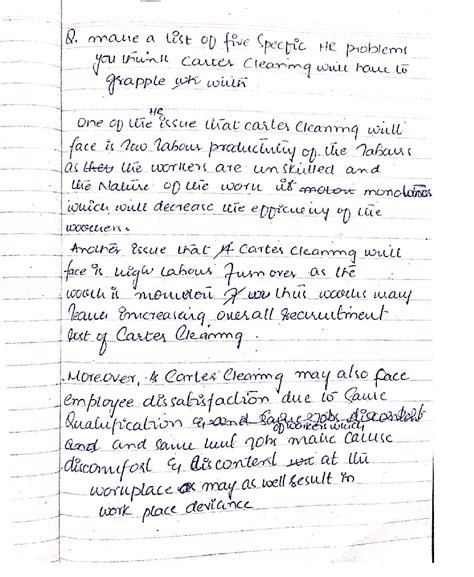 Q. make a list of five specific HR problems
you think Carter Cleaning will have to
grapple with
HR
One of the issue that carter cleaning will
face is low labour productivity of the labours
as the workers are unskilled and
the Nature of the work is
which will decrease the efficiency of the
workers.
Another issue that Carter Cleaning will
face is high labour Turnover as the
work is thus workers may
leave increasing overall recruitment
cost of Carter Cleaning.
Moreover, Carter Cleaning may also face
employee dissatisfaction due to same
Qualification
of workers which
and same level jobs make cause
discomfort & discontent at the
workplace may as well result in
work place deviance